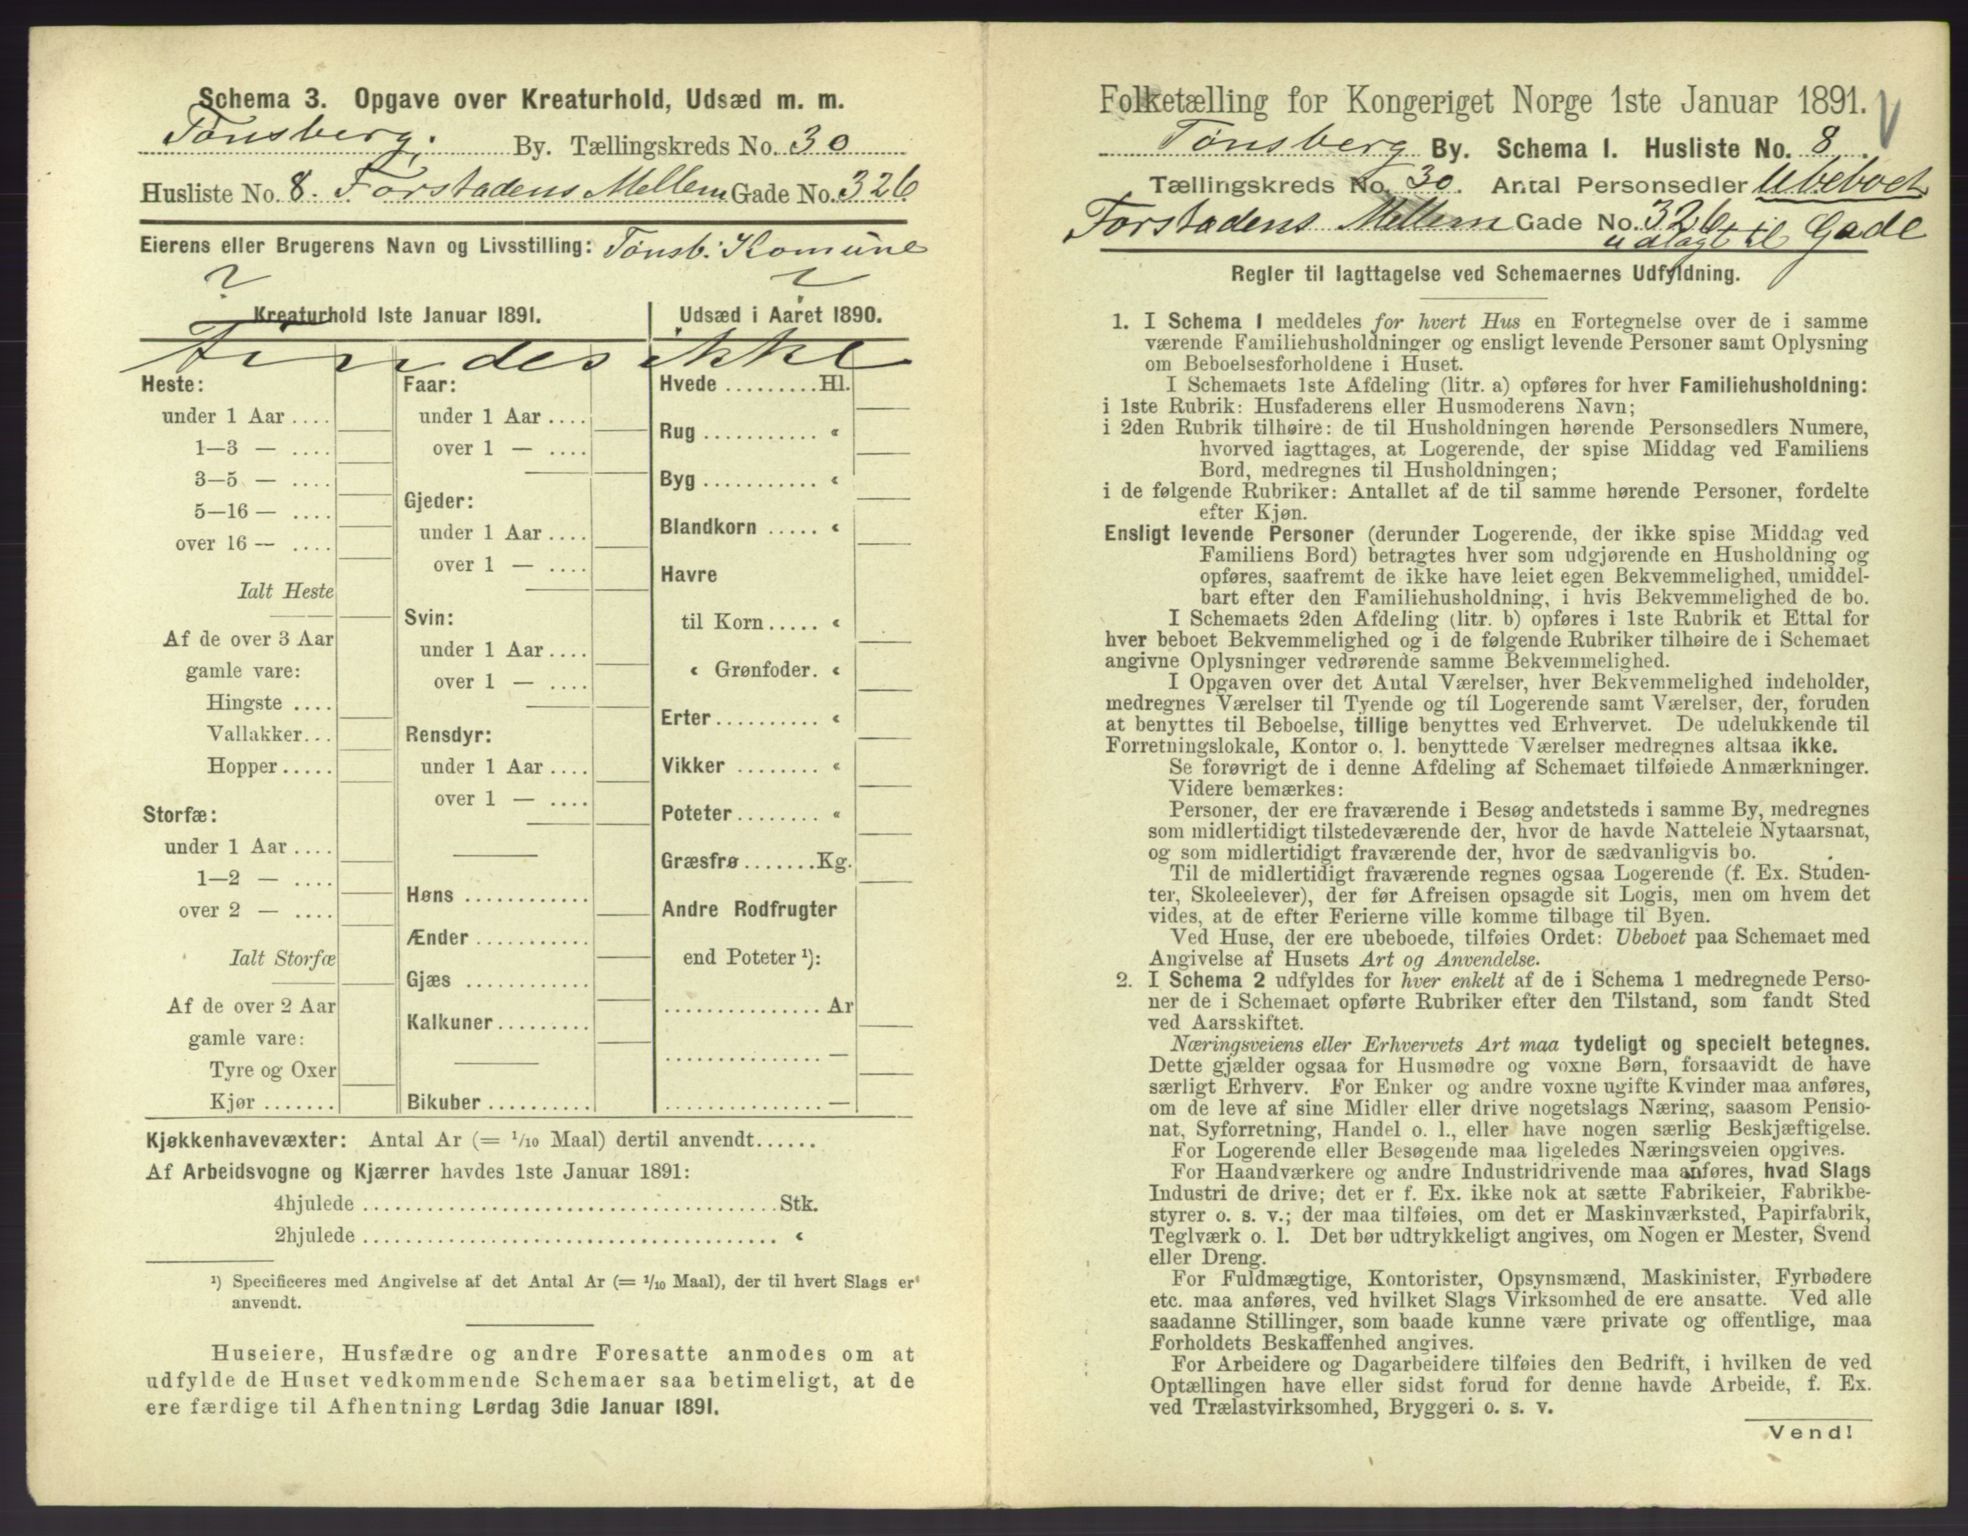 Schema 3. Opgave over Kreaturhold, Udsæd m. m.
Tønsberg. By. Tællingskreds No. 30
Husliste No. 8. Forstadens Mellem Gade No. 326
Eierens eller Brugerens Navn og Livsstilling: Tønsb. Komune
? ?
Kreaturhold 1ste Januar 1891.
Udsæd i Aaret 1890.
Findes ikke
Heste:
under 1 Aar ....
1—3 — ....
3—5 — ....
5—16 — ....
over 16 — ....
Ialt Heste
Af de over 3 Aar
gamle vare:
Hingste ....
Vallakker...
Hopper.....
Storfæ:
under 1 Aar ....
1—2 — ....
over 2 — ....
Ialt Storfæ
Af de over 2 Aar
gamle vare:
Tyre og Oxer
Kjør.......
Faar:
under 1 Aar....
over 1 — ....
Gjeder:
under 1 Aar....
over 1 — ....
Svin:
under 1 Aar....
over 1 — ....
Rensdyr:
under 1 Aar....
over 1 — ....
Høns ............
Ænder...........
Gjæs ............
Kalkuner.........
Bikuber ..........
Hvede .........Hl.
Rug ........... «
Byg ........... «
Blandkorn ..... «
Havre
til Korn..... «
« Grønfoder. «
Erter.......... «
Vikker ........ «
Poteter........ «
Græsfrø.......Kg.
Andre Rodfrugter
end Poteter ¹):
...............Ar
............... —
............... —
Kjøkkenhavevæxter: Antal Ar (= 1/10 Maal) dertil anvendt......
Af Arbeidsvogne og Kjærrer havdes 1ste Januar 1891:
4hjulede .......................................Stk.
2hjulede ....................................... «
¹) Specificeres med Angivelse af det Antal Ar (= 1/10 Maal), der til hvert Slags er
anvendt.
Huseiere, Husfædre og andre Foresatte anmodes om at
udfylde de Huset vedkommende Schemaer saa betimeligt, at de
ere færdige til Afhentning Lørdag 3die Januar 1891.
Folketælling for Kongeriget Norge 1ste Januar 1891.
Tønsberg By. Schema 1. Husliste No. 8.
Tællingskreds No. 30. Antal Personsedler Ubeboet
Forstadens Mellem Gade No. 326
udlagt til Gade
Regler til Iagttagelse ved Schemaernes Udfyldning.
1. I Schema 1 meddeles for hvert Hus en Fortegnelse over de i samme
værende Familiehusholdninger og ensligt levende Personer samt Oplysning
om Beboelsesforholdene i Huset.
I Schemaets 1ste Afdeling (litr. a) opføres for hver Familiehusholdning:
i 1ste Rubrik: Husfaderens eller Husmoderens Navn;
i 2den Rubrik tilhøire: de til Husholdningen hørende Personsedlers Numere,
hvorved iagttages, at Logerende, der spise Middag ved Familiens
Bord, medregnes til Husholdningen;
i de følgende Rubriker: Antallet af de til samme hørende Personer, fordelte
efter Kjøn.
Ensligt levende Personer (derunder Logerende, der ikke spise Middag ved
Familiens Bord) betragtes hver som udgjørende en Husholdning og
opføres, saafremt de ikke have leiet egen Bekvemmelighed, umiddel-
bart efter den Familiehusholdning, i hvis Bekvemmelighed de bo.
I Schemaets 2den Afdeling (litr. b) opføres i 1ste Rubrik et Ettal for
hver beboet Bekvemmelighed og i de følgende Rubriker tilhøire de i Schemaet
angivne Oplysninger vedrørende samme Bekvemmelighed.
I Opgaven over det Antal Værelser, hver Bekvemmelighed indeholder,
medregnes Værelser til Tyende og til Logerende samt Værelser, der, foruden
at benyttes til Beboelse, tillige benyttes ved Erhvervet. De udelukkende til
Forretningslokale, Kontor o. l. benyttede Værelser medregnes altsaa ikke.
Se forøvrigt de i denne Afdeling af Schemaet tilføiede Anmærkninger.
Videre bemærkes:
Personer, der ere fraværende i Besøg andetsteds i samme By, medregnes
som midlertidigt tilstedeværende der, hvor de havde Natteleie Nytaarsnat,
og som midlertidigt fraværende der, hvor de sædvanligvis bo.
Til de midlertidigt fraværende regnes ogsaa Logerende (f. Ex. Studen-
ter, Skoleelever), der før Afreisen opsagde sit Logis, men om hvem det
vides, at de efter Ferierne ville komme tilbage til Byen.
Ved Huse, der ere ubeboede, tilføies Ordet: Ubeboet paa Schemaet med
Angivelse af Husets Art og Anvendelse.
2. I Schema 2 udfyldes for hver enkelt af de i Schema 1 medregnede Perso-
ner de i Schemaet opførte Rubriker efter den Tilstand, som fandt Sted
ved Aarsskiftet.
Næringsveiens eller Erhvervets Art maa tydeligt og specielt betegnes.
Dette gjælder ogsaa for Husmødre og voxne Børn, forsaavidt de have
særligt Erhverv. For Enker og andre voxne ugifte Kvinder maa anføres,
om de leve af sine Midler eller drive nogetslags Næring, saasom Pensio-
nat, Syforretning, Handel o. l., eller have nogen særlig Beskjæftigelse.
For Logerende eller Besøgende maa ligeledes Næringsveien opgives.
For Haandværkere og andre Industridrivende maa anføres, hvad Slags
Industri de drive; det er f. Ex. ikke nok at sætte Fabrikeier, Fabrikbe-
styrer o. s. v.; der maa tilføies, om det er Maskinværksted, Papirfabrik,
Teglværk o. l. Det bør udtrykkeligt angives, om Nogen er Mester, Svend
eller Dreng.
For Fuldmægtige, Kontorister, Opsynsmænd, Maskinister, Fyrbødere
etc. maa anføres, ved hvilket Slags Virksomhed de ere ansatte. Ved alle
saadanne Stillinger, som baade kunne være private og offentlige, maa
Forholdets Beskaffenhed angives.
For Arbeidere og Dagarbeidere tilføies den Bedrift, i hvilken de ved
Optællingen have eller sidst forud for denne havde Arbeide, f. Ex.
ved Trælastvirksomhed, Bryggeri o. s. v.
Vend!